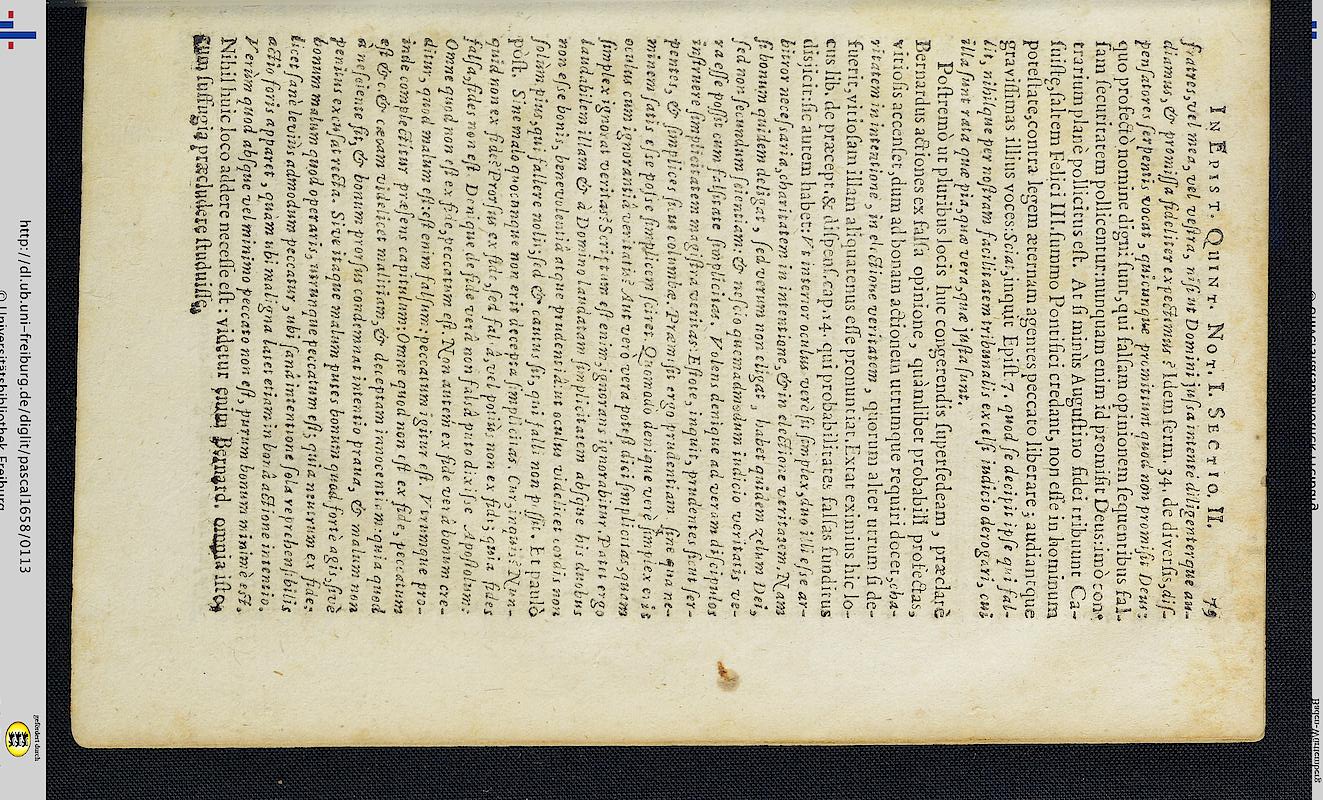 IN EPIST. QUINT. NOT. I. SECTIO II. 79
fratres, vel mea, vel vestra, nisi ut Domini jussa intentè diligenterque au-
diamus, & promissa fideliter expectemus? Idem serm. 34. de diversis, dis-
pensatores serpentis vocat, quicunque promittunt quod non promisit Deus:
quo profectò nomine digni sunt, qui falsam opinionem sequentibus fal-
sam securitatem pollicentur: nunquam enim id promisit Deus: imò con-
trarium planè pollicitus est. At si minùs Augustino fidei tribuunt Ca-
suistæ, saltem Felici III. summo Pontifici credant, non esse in hominum
potestate, contra legem æternam agentes peccato liberare; audiantque
gravissimas illius voces: Sciat, inquit Epist. 7. quod se decipit ipse qui fal-
lit, nihilque per nostram facilitatem tribunalis excelsi judicio derogari, cui
illa sunt rata quæ pia, quæ vera, quæ justa sunt.
Postremò ut pluribus locis huc congerendis supersedeam, præclarè
Bernardus actiones ex falsa opinione, quàmlibet probabili profectas,
vitiosis accenset, dum ad bonam actionem utrumque requiri docet, cha-
ritatem in intentione, in electione veritatem, quorum alter utrum si de-
fuerit, vitiosam illam aliquatenus esse pronuntiat. Extat eximius hic lo-
cus lib. de præcept. & dispens. cap. 14. qui probabilitates falsas funditus
disjicit: sic autem habet: Ut interior oculus verè sit simplex, duo illi esse ar-
bitror necessaria, charitatem in intentione, & in electione veritatem. Nam
si bonum quidem deligat, sed verum non eligat, habet quidem zelum Dei,
sed non secundum scientiam: & nescio quemadmodum judicio veritatis ve-
ra esse possit cum falsitate simplicitas. Volens denique ad veram discipulos
instruere simplicitatem magistra veritas: Estote, inquit, prudentes sicut ser-
pentes, & simplices sicut columbæ. Præmisit ergo prudentiam, sine qua ne-
minem satis esse posse simplicem sciret. Quomodo denique verè simplex erit
oculus cum ignorantiâ veritatis? Aut vero vera potest dici simplicitas, quam
simplex ignorat veritas? Scriptum est enim, ignorans ignorabitur. Patet ergo
laudabilem illam & à Domino laudatam simplicitatem absque his duobus
non esse bonis, benevolentiâ atque prudentiâ: ut oculus videlicet cordis non
solùm pius, qui fallere nolit, sed & cautus sit, qui falli non possit. Et paulò
pòst. Sine malo quocunque non erit decepta simplicitas. Cur, inquis? Nun-
quid non ex fide? Prorsus ex fide, sed falsâ, vel potiùs non ex fide, quia fides
falsa, fides non est. Denique de fide verâ non falsâ puto dixisse Apostolum:
Omne quod non est ex fide, peccatum est. Non autem ex fide verâ bonum cre-
ditur, quod malum est: est enim falsum: peccatum igitur est. Utrumque pro-
inde complectitur præsens capitulum: Omne quod non est ex fide, peccatum
est, &c. & cæcam videlicet malitiam, & deceptam innocentiam: quia quod
à nesciente fit, & bonum prorsus condemnat intentio prava, & malum non
penitus excusat recta. Sive itaque malum putes bonum quod fortè agis, sive
bonum malum quod operaris, utrunque peccatum est; quia neutrum ex fide.
licet sanè leviùs admodum peccatur, ubi sanâ intentione sola reprehensibilis
actio foris apparet, quàm ubi maligna latet etiam in bonâ actione intentio.
Verùm quod absque vel minimo peccato non est, purum bonum minimè est.
Nihil huic loco addere necesse est: videtur enim Bernard. omnia isto-
rum suffugia præcludere studuisse.
http://dl.ub.uni-freiburg.de/diglit/pascal1658/0113
© Universitätsbibliothek Freiburg
gefördert durch
Baden-Württemberg